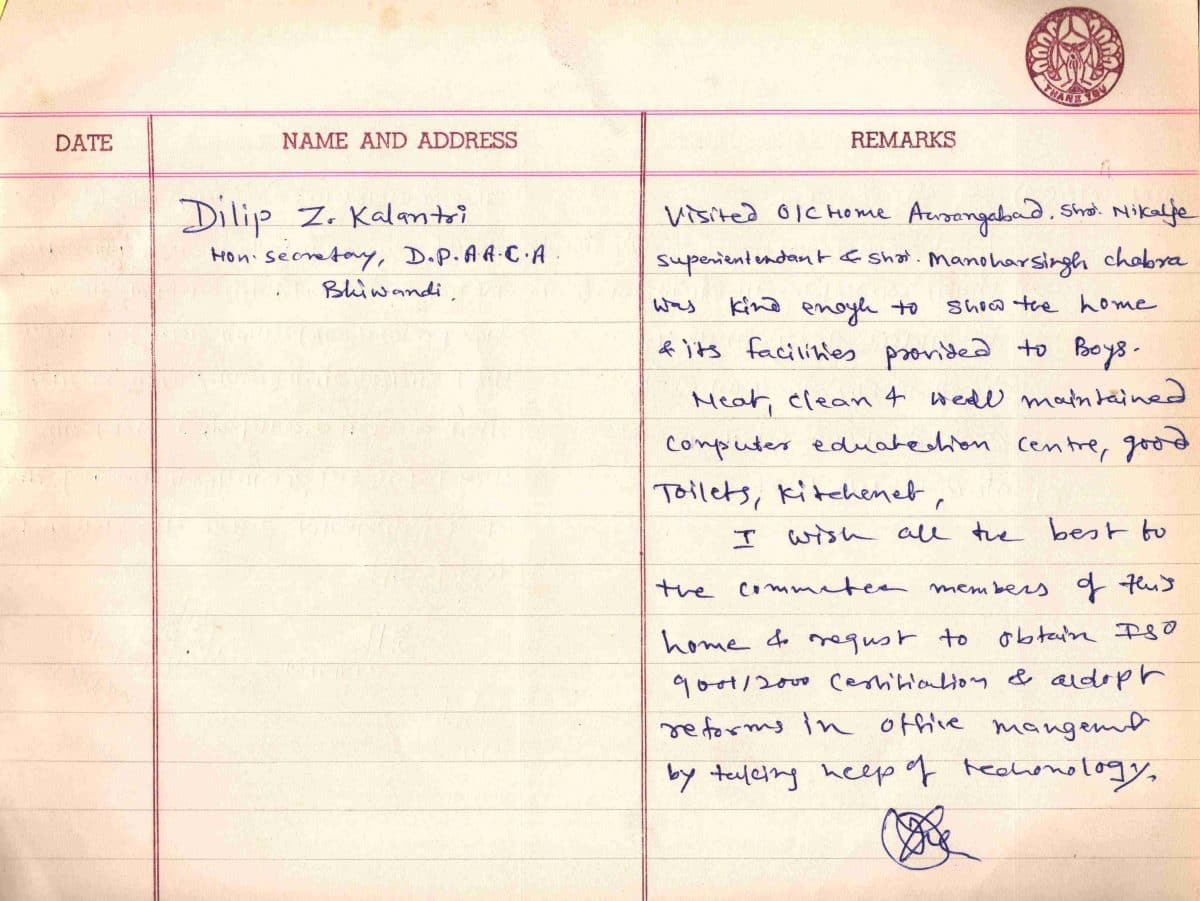 THANK YOU
DATE
NAME AND ADDRESS
REMARKS
Dilip Z. Kalantri
Hon. Secretary, D.P.A.A.C.A.
Bhiwandi.
Visited O/C Home Aurangabad. Shri. Nikalje
superientendant & Shri. Manoharsingh chabra
was kind enogh to show the home
& its facilities provided to Boys.
Neat, clean & well maintained
computer eduatechion centre, good
Toilets, kitchenet,
I wish all the best to
the commetee members of this
home & requst to obtain ISO
9001/2000 Certification & addopt
reforms in office mangemt
by taking help of techonology.